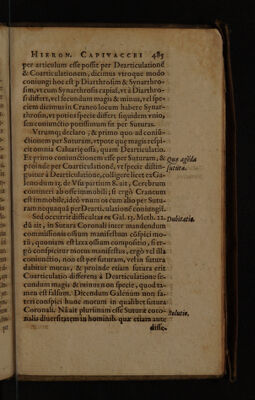 HIERON. CAPIVACCEI 485
per articulum esse possit per Dearticulationẽ
& Coarticulationem, dicimus vtroque modo
coniungi hoc est p Diarthrosim & Synarthro-
sim, vt cum Synarthrosis capiaf, vt à Diarthro-
si differt, vel secundum magis & minus, vel spe-
ciem dicimus in Craneo locum habere Synar-
throsin, vt potius specie differt siquidem vnio,
seu coniunctio potissimum fit per Suturas.
Vtrumq; declaro, & primo quo ad coniũ-
ctionem per Suturam, vtpote quę magis respi-
cit omnia Caluariæ ossa, quam Dearticulatio.
Et primo coniunctionem esse per Suturam, &
Quæ agẽda
proinde per Coarticulationẽ, vt specie distin-
sutura.
guitur à Dearticulatione, colligere licet ex Ga-
leno dum 13. de Vsu partium &. ait, Cerebrum
contineri ab osse immobili; si ergò Craneum
est immobile, ideò vnum os cum alio per Sutu-
ram nequaquã per Dearticulationẽ coniungit.
Sed occurrit difficultas ex Gal. 13. Meth. 22.
Dubitatio.
dũ ait, in Sutura Coronali inter mandendum
commissionis ossium manifestum conspici mo-
tũ, quoniam est laxa ossium compositio, si er-
gò conspicitur motus manifestus, ergò vel illa
coniunctio, non est per suturam, vel in sutura
dabitur motus, & proinde etiam sutura erit
Coarticulatio differens à Dearticulatione se-
cundum magis & minus non specie, quod ta-
men est falsum. Dicendum Galenum non fa-
teri conspici hunc motum in qualibet sutura
Coronali. Nã ait plurimam esse Suturæ coro-
Solutio.
nalis diuersitatem in hominib. quæ etiam ante
disse-